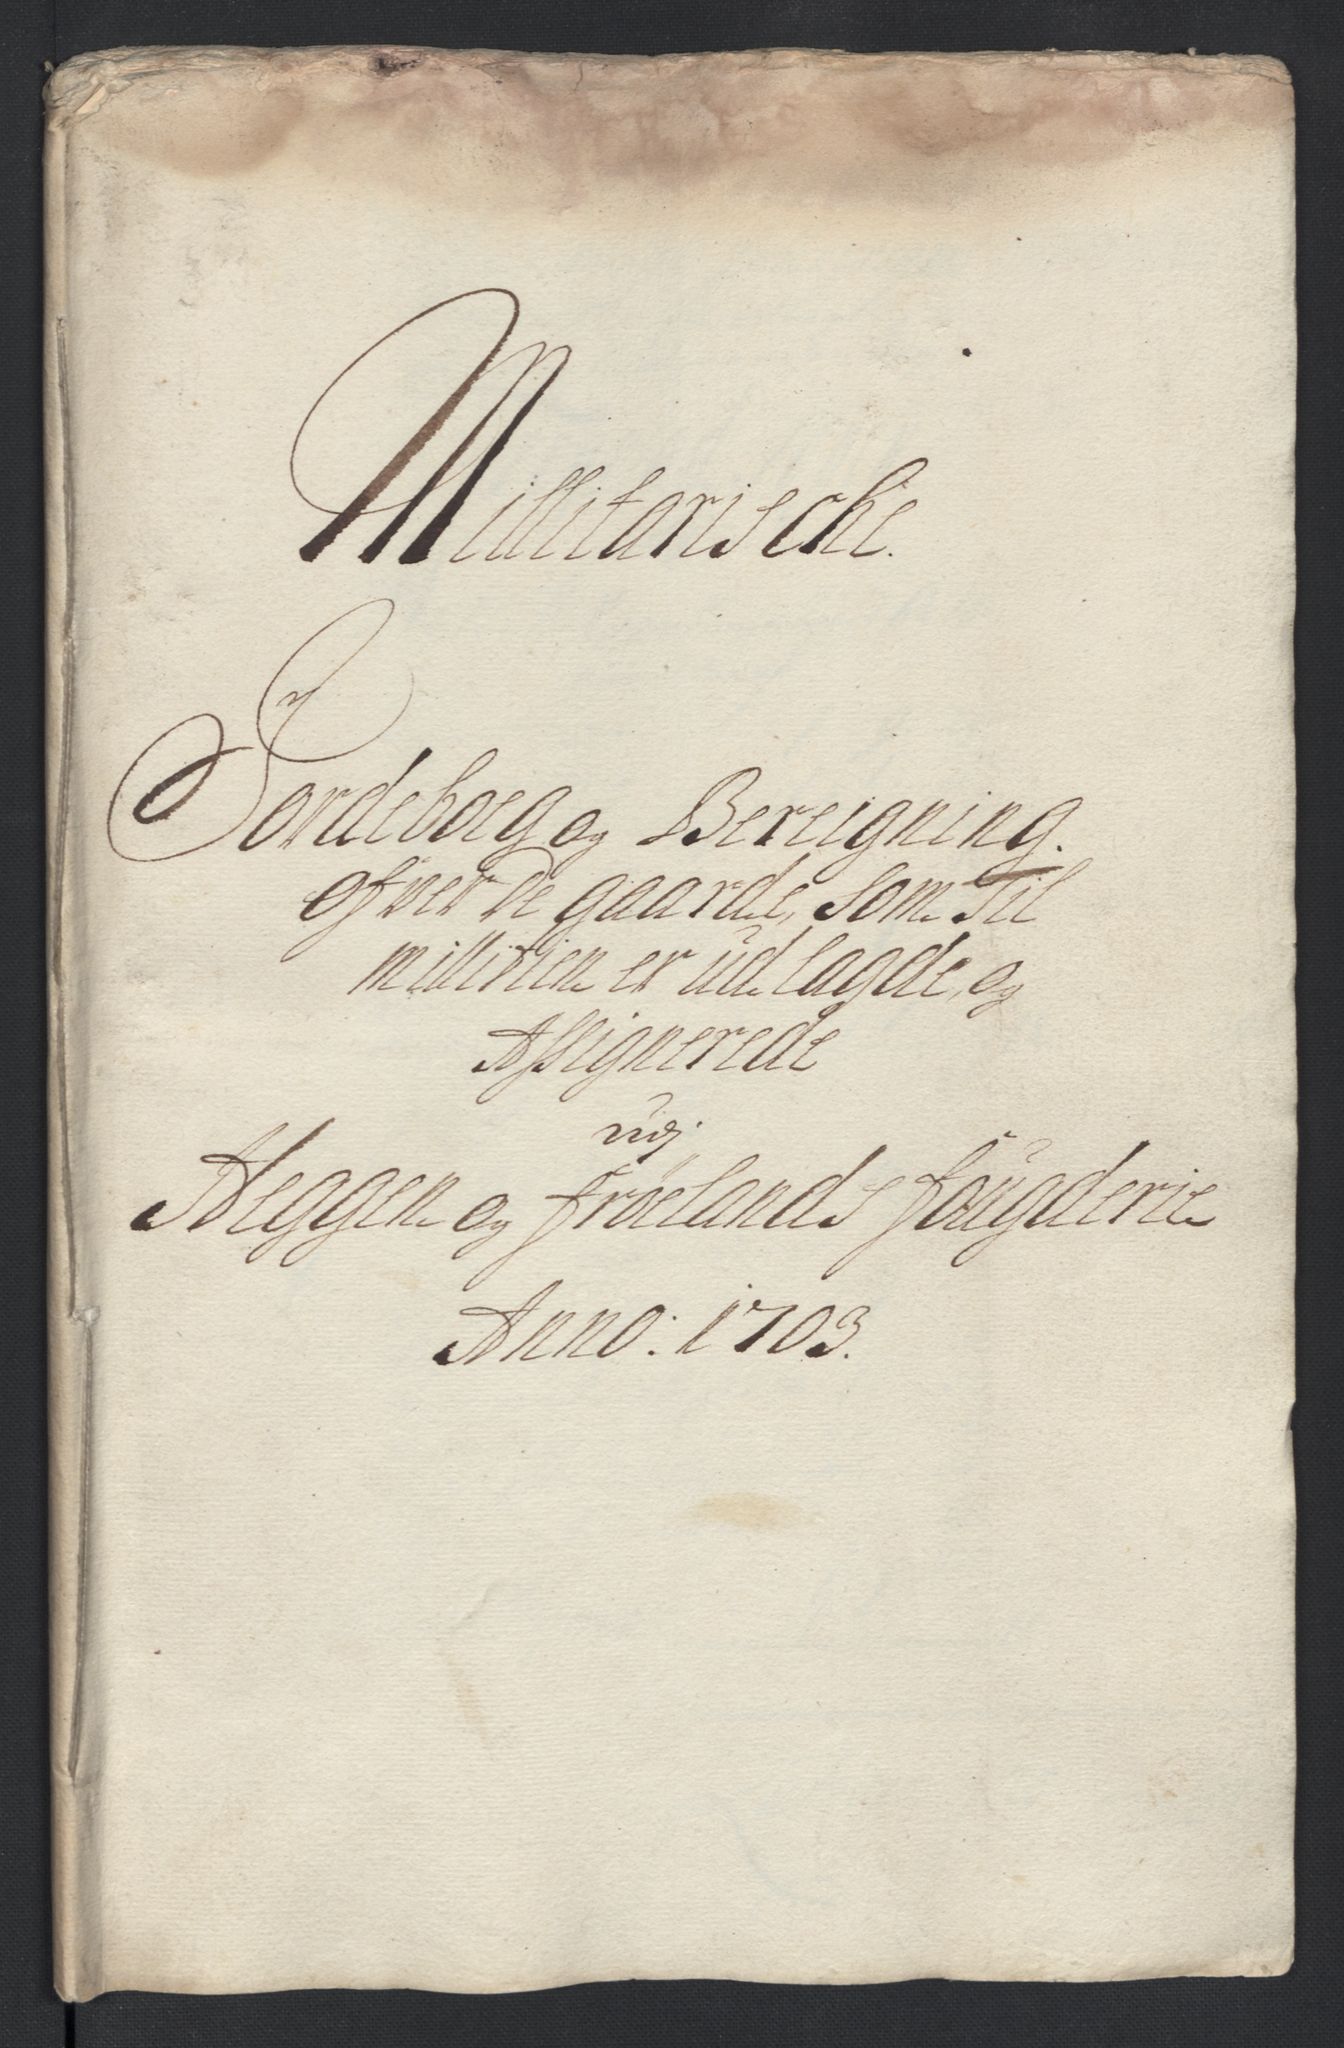 Millitarische.
Jordeboeg og Bereigning.
ofver De gaarde, som Til
millitien er üdlagde, og
Assignerede
udj
Heggen og Frøelands fougderie
Anno: 1703.